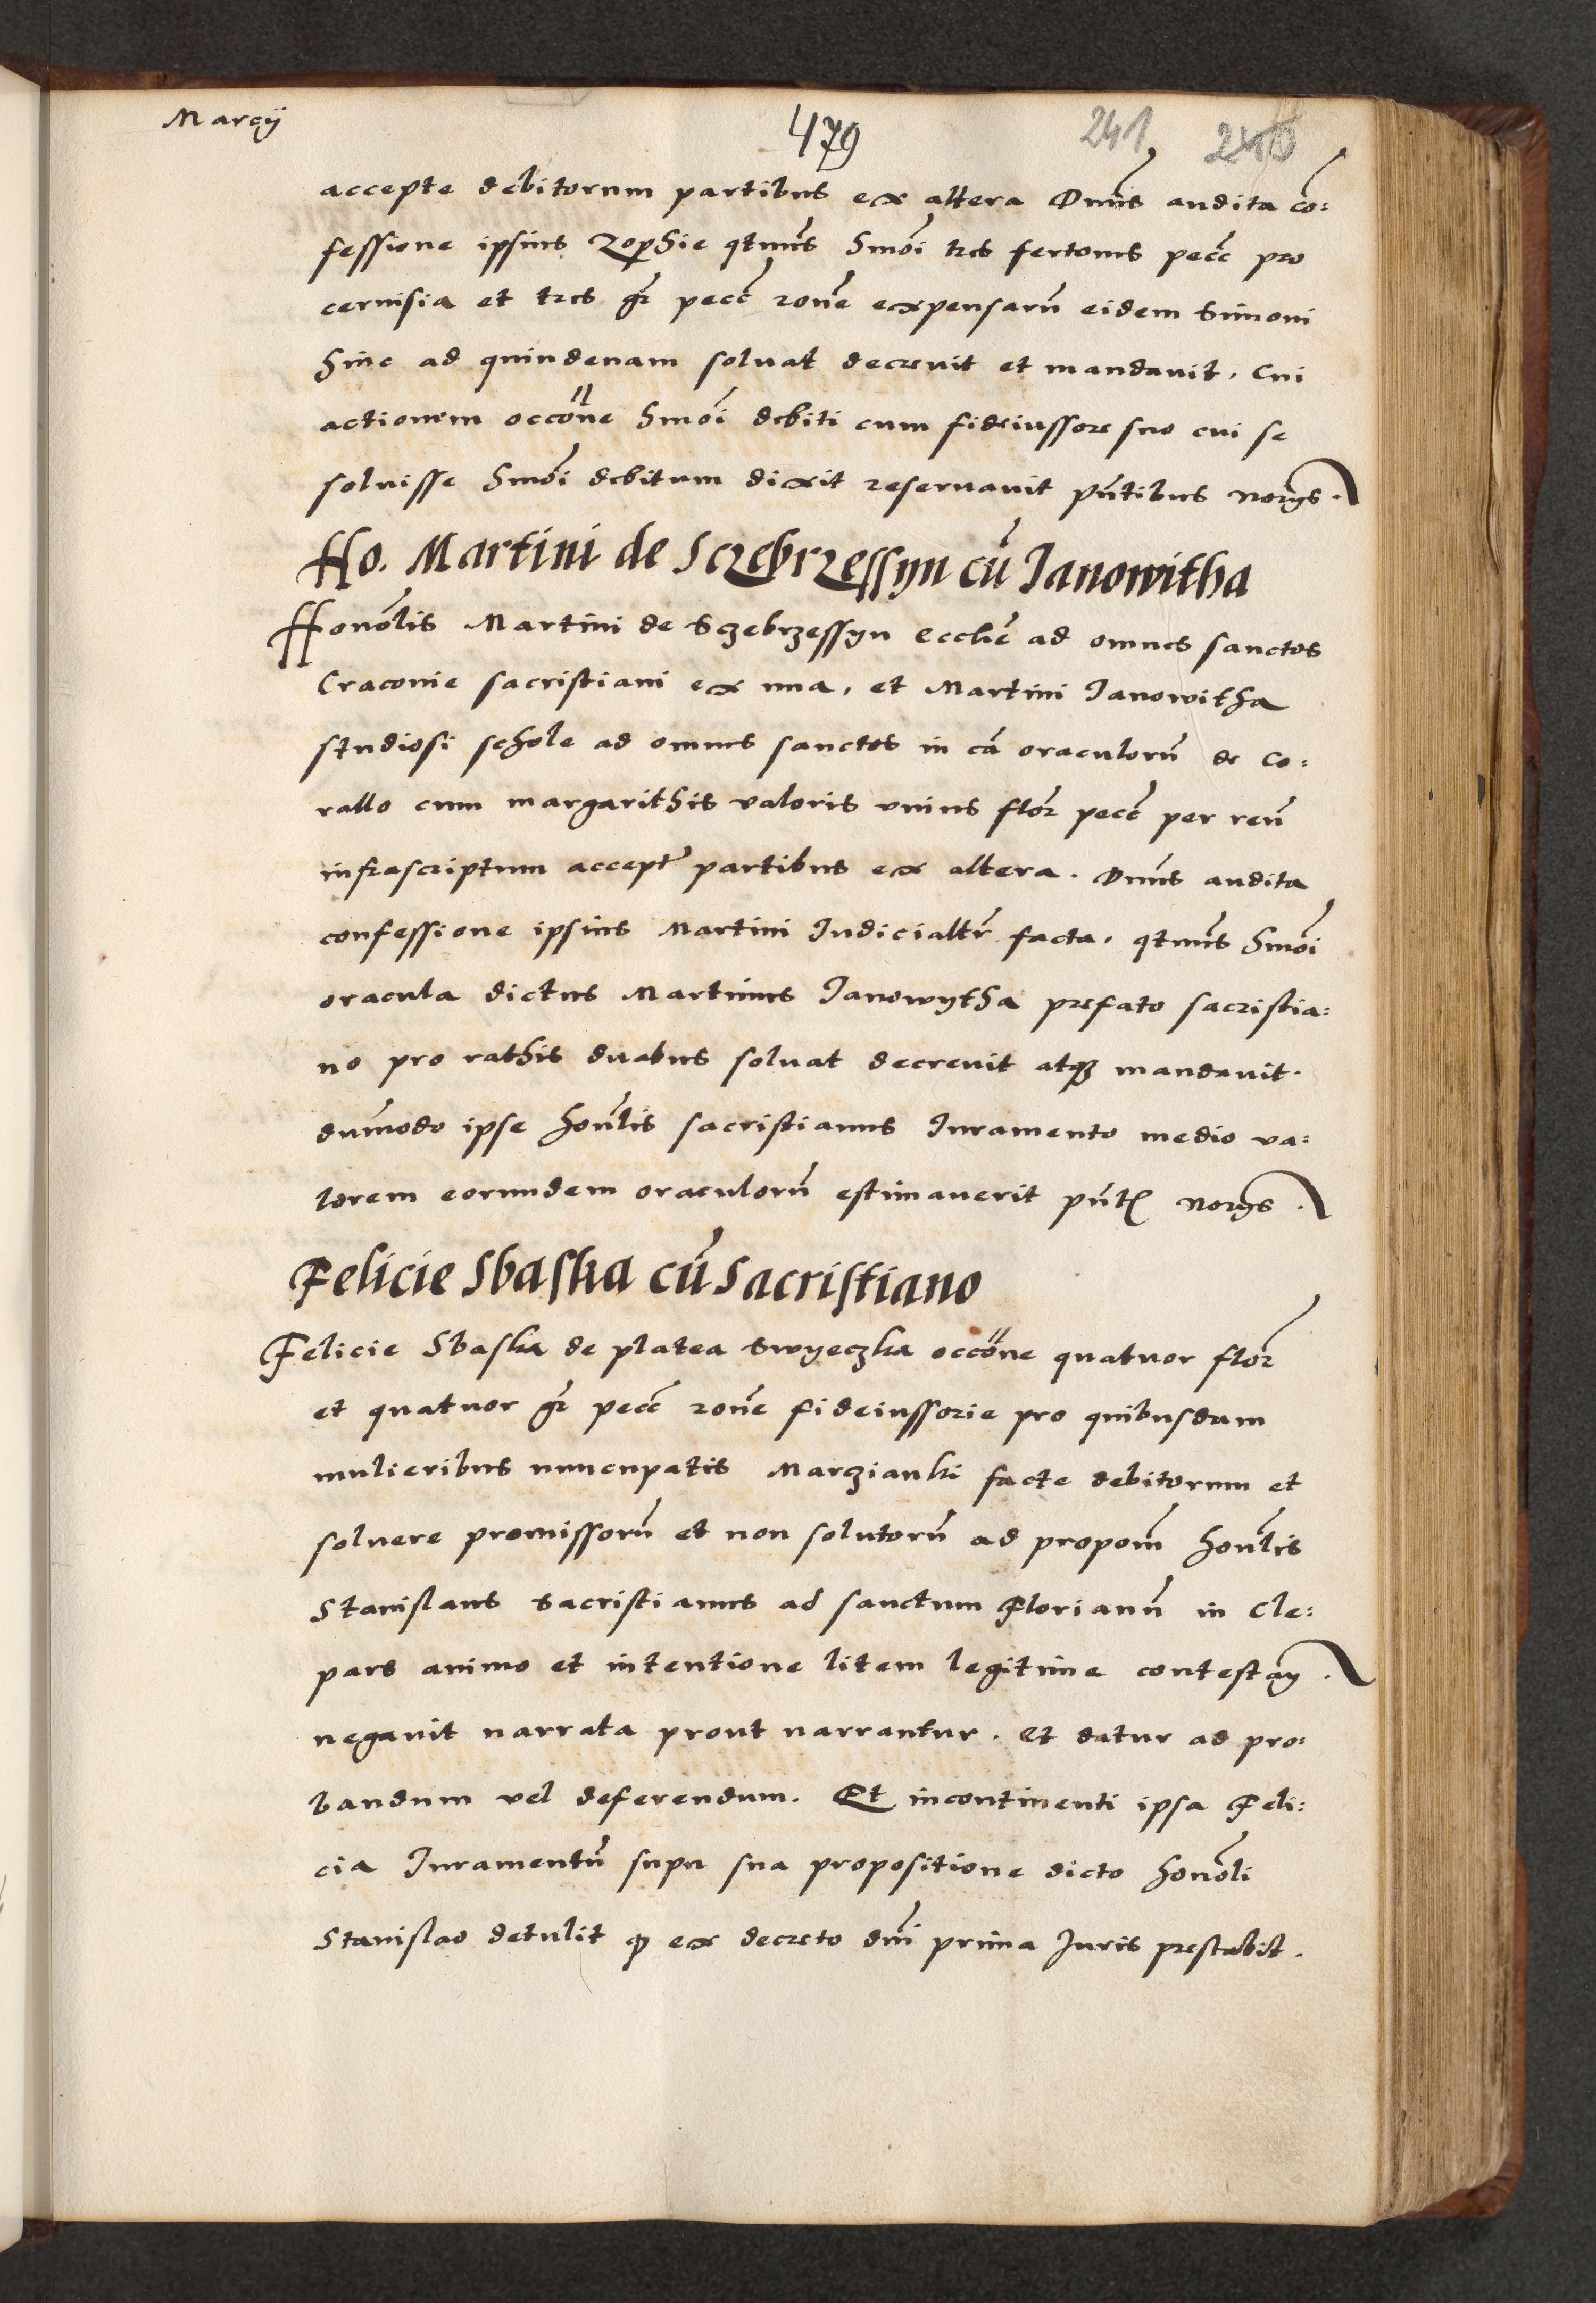 Marcÿ
479
241 240
accepte debitorum partibus ex altera Dnus̄ audita cō:
fessione ipsius Zophie qtmus̄ hmōi tres fertones pecc̄ pro
ceruisia et tres gr̄ pecc̄ rōne expensarū eidem Simoni
hinc ad quindenam soluat decreuit et mandauit. Cui
actionem occōne hmōi debiti cum fideiussore suo cui se
soluisse hmōi debitum dixit reseruauit pn̄tibus norijs.
Ho. Martini de Sczebrzessyn cū Janowitha
Honōlis Martini de Sczebrzessyn eccl̄ie ad omnes sanctos
Craconie sacristiani ex una, et Martini Janowitha
studiosi schole ad omnes sanctos in cā oraculorū de co:
rallo cum margarithis valoris vnius flor̄ pecc̄ per reū
infrascriptum accept̄ partibus ex altera. Dnus̄ audita
confessione ipsius Martini Judicialtr̄ facta, qtmus̄ hmōi
oracula dictus Martinus Janowytha prefato sacristia:
no pro rathis duabus soluat decreuit atqꝫ mandauit.
dūmodo ipse honl̄is sacristianus Juramento medio va:
lorem eorundem oraculorū estimauerit pn̄t norijs.
Felicie Sbaska cū Sacristiano
Felicie Sbaska de platea Swyeczka occōne quatuor flor̄
et quatuor gr̄ pecc̄ rōne fideiussorie pro quibusdam
mulieribus nuncupatis Marczianki facte debitorum et
soluere promissorū et non solutorū ad propom̄ honl̄is
Stanislaus Sacristianus ad sanctum Florianū in Cle:
pars animo et intentione litem legitime contestan̄.
negauit narrata prout narrantur. Et datur ad pro:
bandum vel deferendum. Et incontinenti ipsa Feli:
cia Juramentū supra sua propositione dicto honōli
Stanislao detulit qꝫ ex decreto dni̅ prima Juris prestabit.